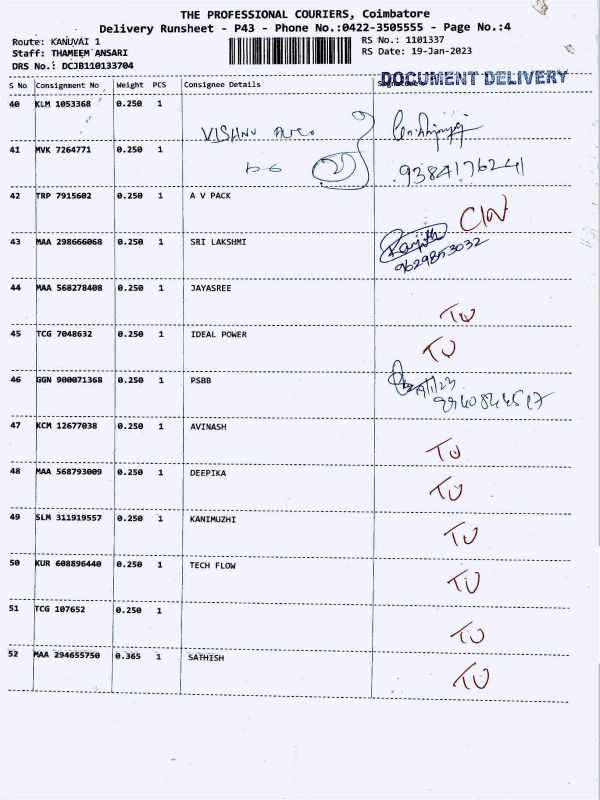 THE PROFESSIONAL COURIERS, Coimbatore
Delivery Runsheet - P43 - Phone No.:0422-3505555 - Page No.:4
Route: KANUVAI 1 RS No.: 1101337
Staff: THAMEEM ANSARI RS Date: 19-Jan-2023
DRS No.: DCJB110133704
DOCUMENT DELIVERY
S No Consignment No Weight PCS Consignee Details Signature
40 KLM 1053368 0.250 1
VISHNU
41 MVK 7264771 0.250 1
9384176241
42 TRP 7915602 0.250 1 A V PACK
CIN
43 MAA 298666068 0.250 1 SRI LAKSHMI
Ranjith
9629853032
44 MAA 568278408 0.250 1 JAYASREE
TU
45 TCG 7048632 0.250 1 IDEAL POWER
TU
46 GGN 900071368 0.250 1 PSBB
47 KCM 12677038 0.250 1 AVINASH
TU
48 MAA 568793009 0.250 1 DEEPIKA
TU
49 SLM 311919557 0.250 1 KANIMUZHI
TU
50 KUR 608896440 0.250 1 TECH FLOW
TU
51 TCG 107652 0.250 1
TU
52 MAA 294655750 0.365 1 SATHISH
TU